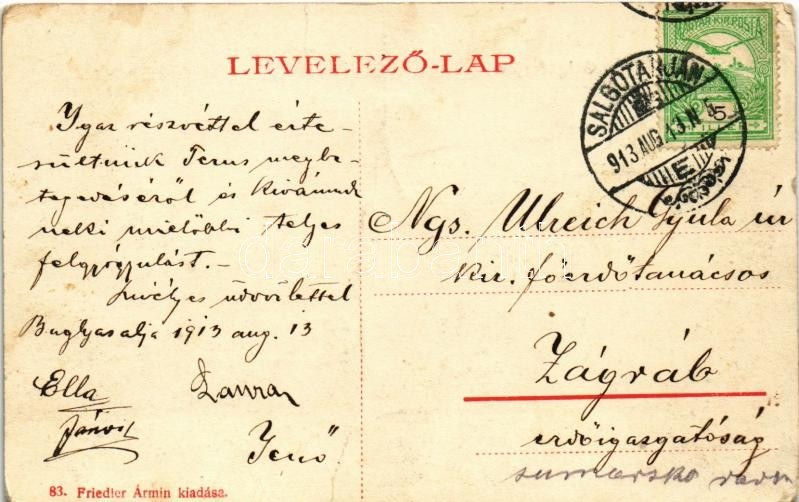 LEVELEZŐ-LAP
MAGYAR KIR. POSTA
SALGÓTARJÁN
913 AUG 13 N 5
E
5
Igaz részvéttel érte-
sültünk Terus megbe-
tegedéséről és kivánunk
neki mielőbbi teljes
felgyógyulást.-
Szivélyes üdvözlettel
Baglyasalja 1913 aug. 13
Ella
Laura
János
Jenő
Ngs. Ulreich Gyula úr
kir. főerdőtanácsos
Zágráb
erdőigazgatóság
sumarsko
83. Friedler Ármin kiadása.